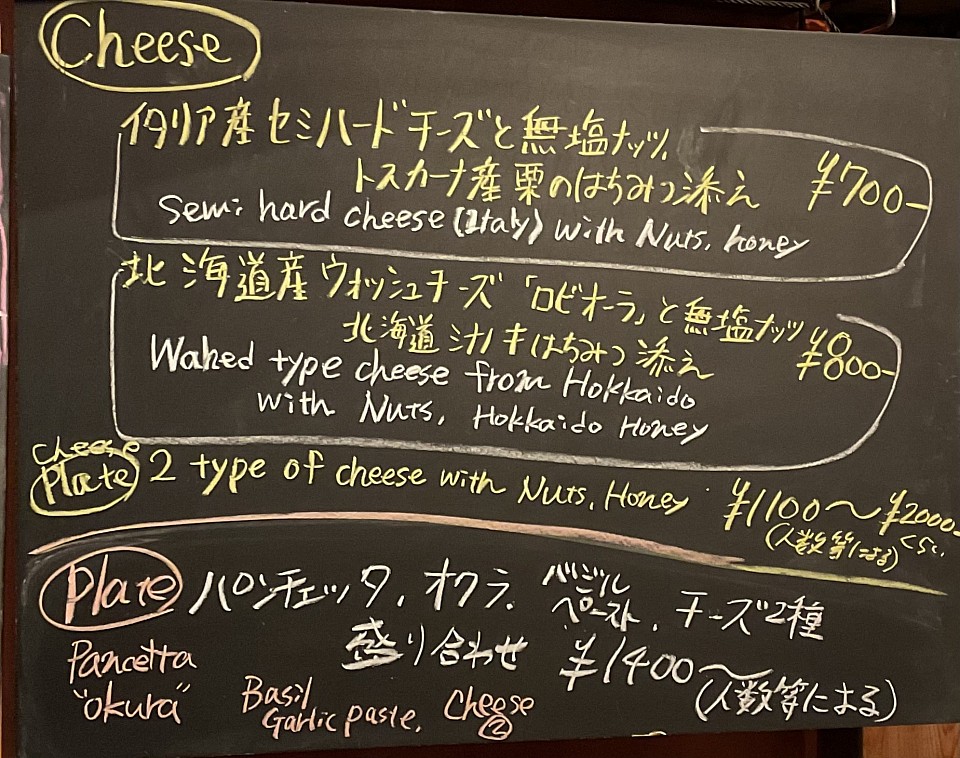 Cheese
イタリア産セミハードチーズと無塩ナッツ、
トスカーナ産栗のはちみつ添え ¥700-
Semi hard cheese (Italy) with Nuts, honey
北海道産ウォッシュチーズ「ロビオーラ」と無塩ナッツ
北海道シナノキはちみつ添え ¥800-
Wahed type cheese from Hokkaido
with Nuts, Hokkaido Honey
cheese
Plate 2 type of cheese with Nuts, Honey ¥1100〜¥2000-
(人数等による) くらい
Plate パンチェッタ、オクラ、バジルペースト、チーズ2種
盛り合わせ ¥1400〜
(人数等による)
Pancetta
"okura"
Basil
Garlic paste, Cheese
②